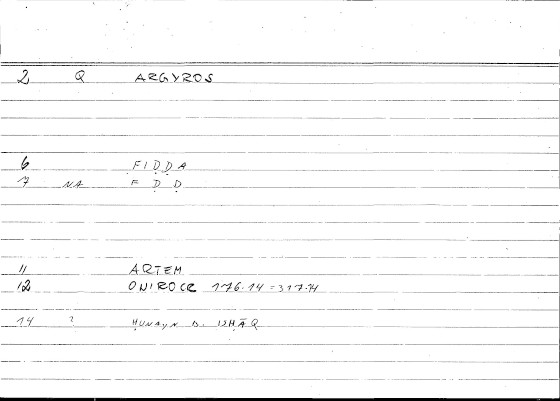 2 Q ARGYROS
6 FIḌḌA
7 NA F Ḍ Ḍ
11 ARTEM
12 ONIROCR 176.14 = 317.14
14 ? ḤUNAYN B. ISḤĀQ